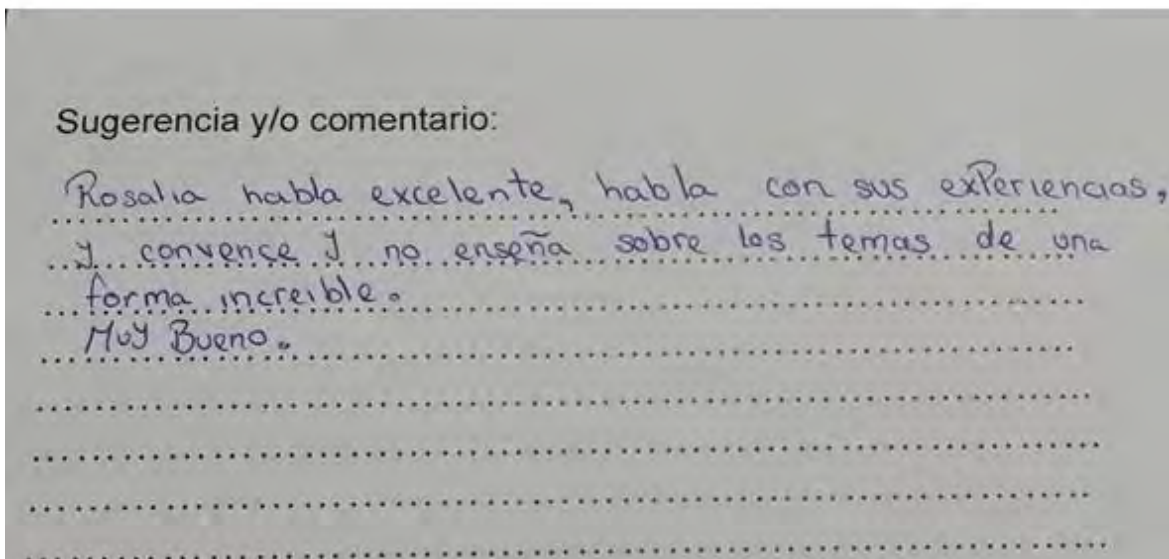 Sugerencia y/o comentario:
Rosalia habla excelente, habla con sus experiencias,
y convence y no enseña sobre los temas de una
forma increible.
Muy Bueno.